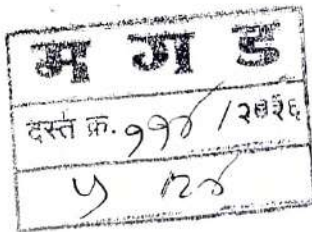 म ग ड
दस्त क्र. ११४ /२०१६
५ /२४